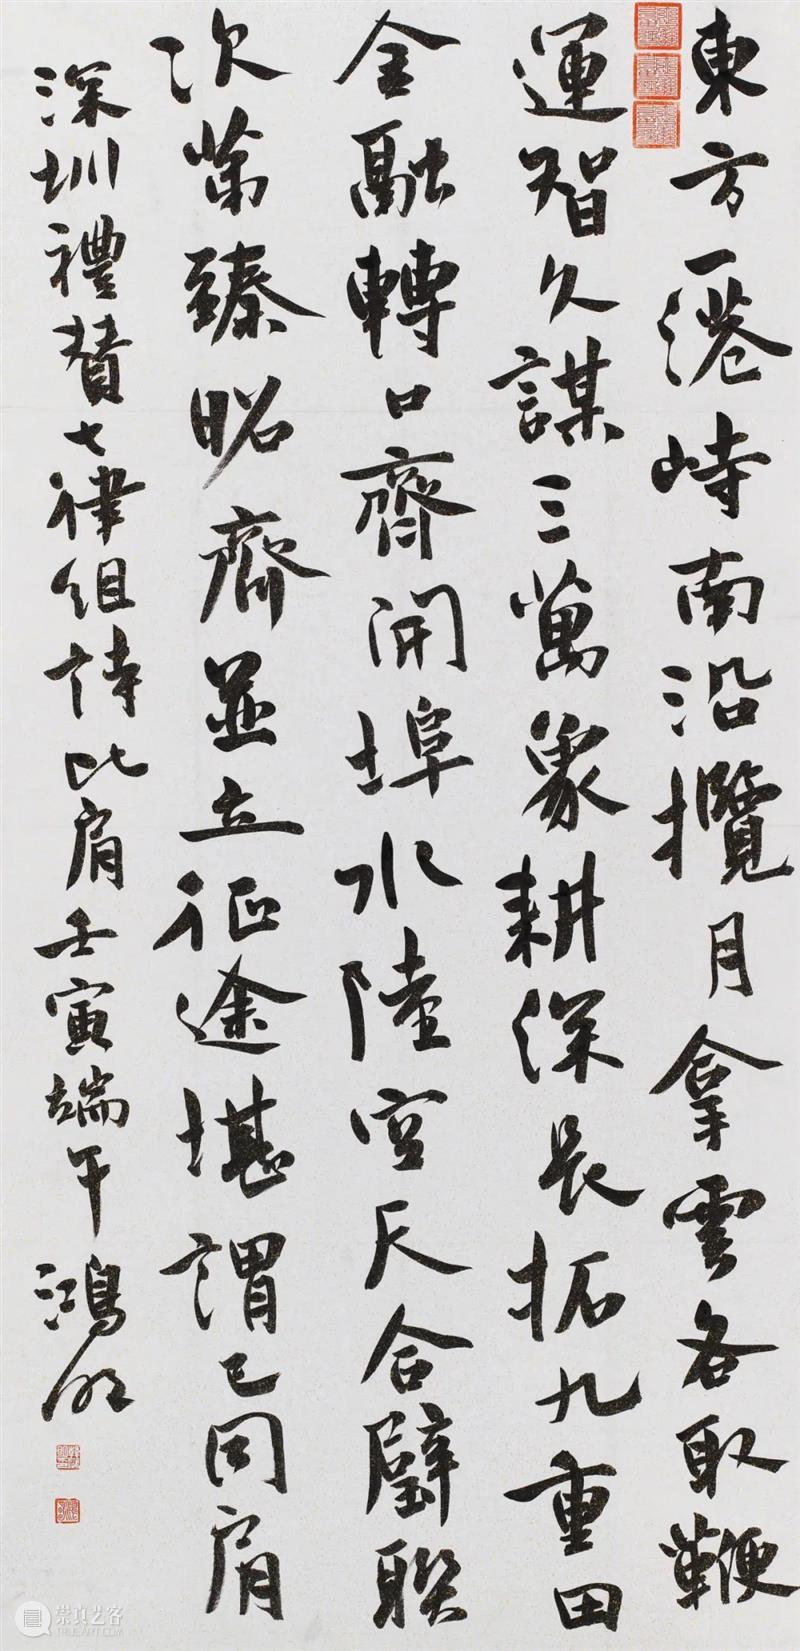 東方一港峙南沿攬月拿雲各取鞭
運智久謀三萬象耕深長拓九重田
金融轉口齊開埠水陸空天合璧聯
次第臻昭齊並立征途堪謂已同肩
深圳禮贊七律組詩比肩壬寅端午鴻
崇真艺客